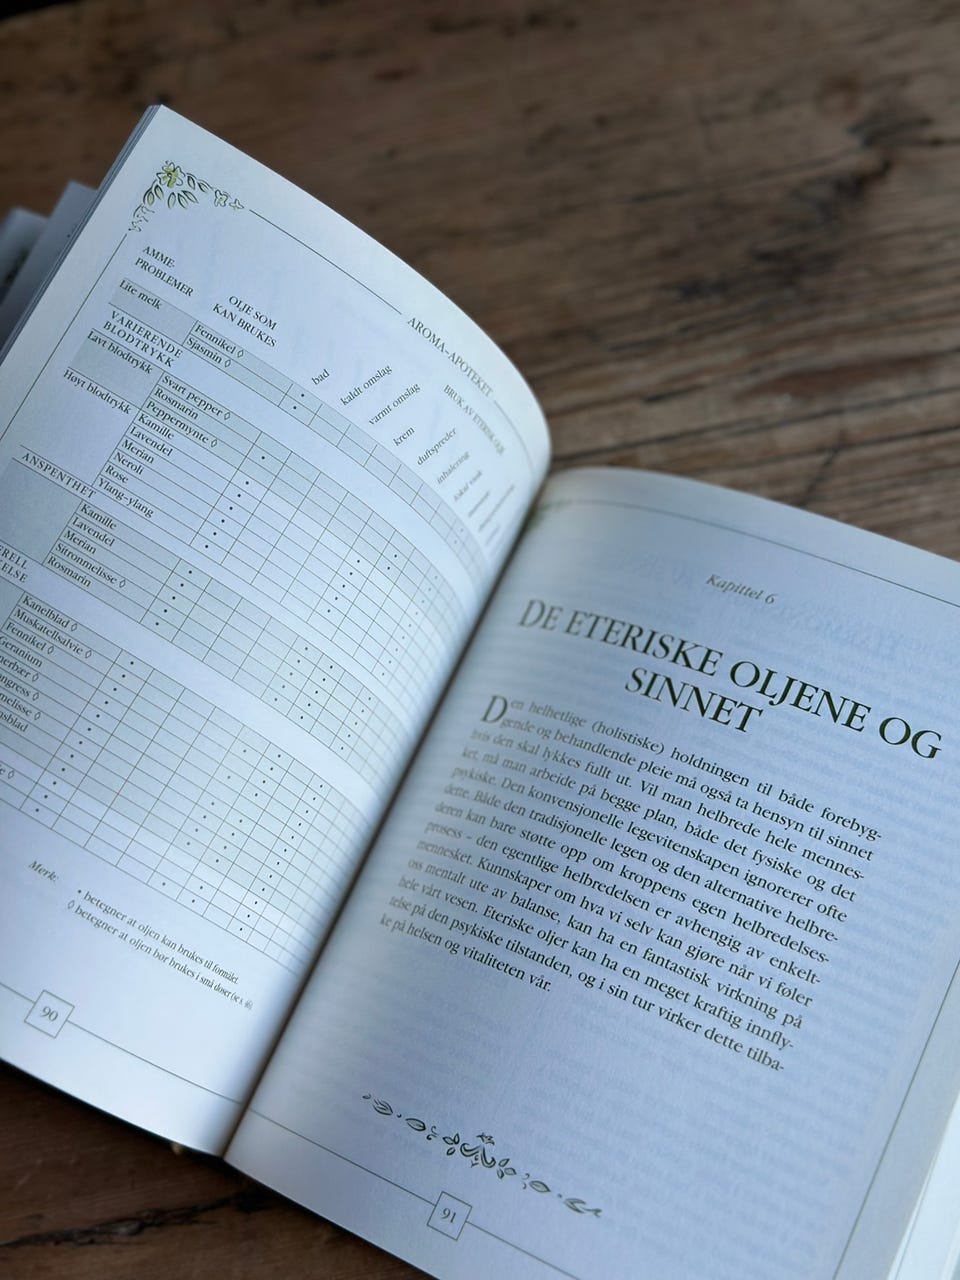 AROMA-APOTEKET
AMME-
PROBLEMER
OLJE SOM
KAN BRUKES
bad
kaldt omslag
varmt omslag
krem
duftspreder
inhalering
BRUK AV
Lite melk
Fennikel ◊
Sjasmin ◊
VARIERENDE
BLODTRYKK
Lavt blodtrykk
Svart pepper ◊
Rosmarin
Peppermynte ◊
Høyt blodtrykk
Kamille
Lavendel
Merian
Neroli
Rose
Ylang-ylang
ANSPENTHET
Kamille
Lavendel
Merian
Sitronmelisse ◊
Rosmarin
Kanelblad ◊
Muskatellsalvie ◊
Fennikel ◊
Geranium
Merk:
• betegner at oljen kan brukes til formålet.
◊ betegner at oljen bør brukes i små doser
90
Kapittel 6
DE ETERISKE OLJENE OG
SINNET
Den helhetlige (holistiske) holdningen til både forebyg-
gende og behandlende pleie må også ta hensyn til sinnet
hvis den skal lykkes fullt ut. Vil man helbrede hele mennes-
ket, må man arbeide på begge plan, både det fysiske og det
psykiske. Den konvensjonelle legevitenskapen ignorerer ofte
dette. Både den tradisjonelle legen og den alternative helbre-
deren kan bare støtte opp om kroppens egen helbredelses-
prosess – den egentlige helbredelsen er avhengig av enkelt-
mennesket. Kunnskaper om hva vi selv kan gjøre når vi føler
oss mentalt ute av balanse, kan ha en fantastisk virkning på
hele vårt vesen. Eteriske oljer kan ha en meget kraftig innfly-
telse på den psykiske tilstanden, og i sin tur virker dette tilba-
ke på helsen og vitaliteten vår.
91